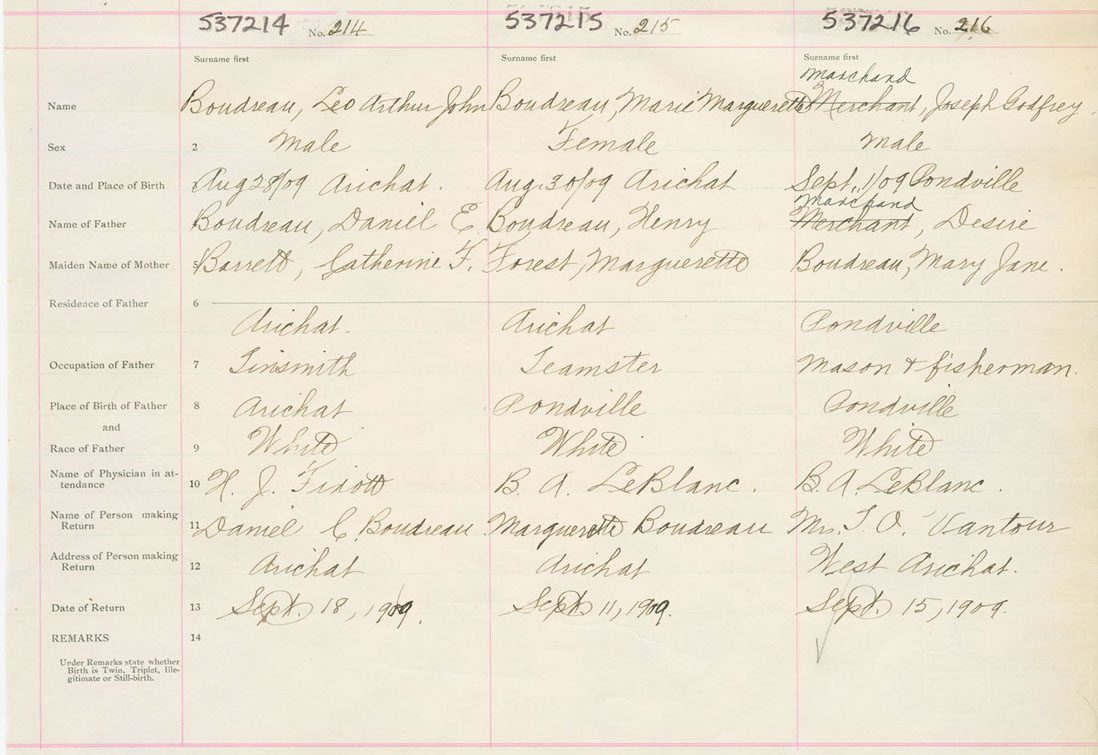 537214 No. 214 537215 No. 215 537216 No. 216
Surname first Surname first Surname first
Marchand
Name Boudreau, Leo Arthur John Boudreau, Marie Marguerette Merchant, Joseph Godfrey.
Sex 2 Male Female Male
Date and Place of Birth Aug 28/09 Arichat. Aug. 30/09 Arichat Sept. 1/09 Pondville
Marchand
Name of Father Boudreau, Daniel E. Boudreau, Henry Merchant, Desire
Maiden Name of Mother Barrett, Catherine F. Forest, Marguerette Boudreau, Mary Jane.
Residence of Father 6
Arichat. Arichat Pondville
Occupation of Father 7 Tinsmith Teamster Mason & fisherman.
Place of Birth of Father 8 Arichat Pondville Pondville
and
Race of Father 9 White White White
Name of Physician in at-
tendance 10 B. A. LeBlanc. B. A. LeBlanc.
Name of Person making
Return 11 Daniel E Boudreau Marguerette Boudreau Mrs.
Address of Person making
Return 12 Arichat Arichat West Arichat.
Date of Return 13 Sept. 18, 1909. Sept 11, 1909. Sept. 15, 1909.
REMARKS 14
Under Remarks state whether
Birth is Twin, Triplet, Ille-
gitimate or Still-birth.